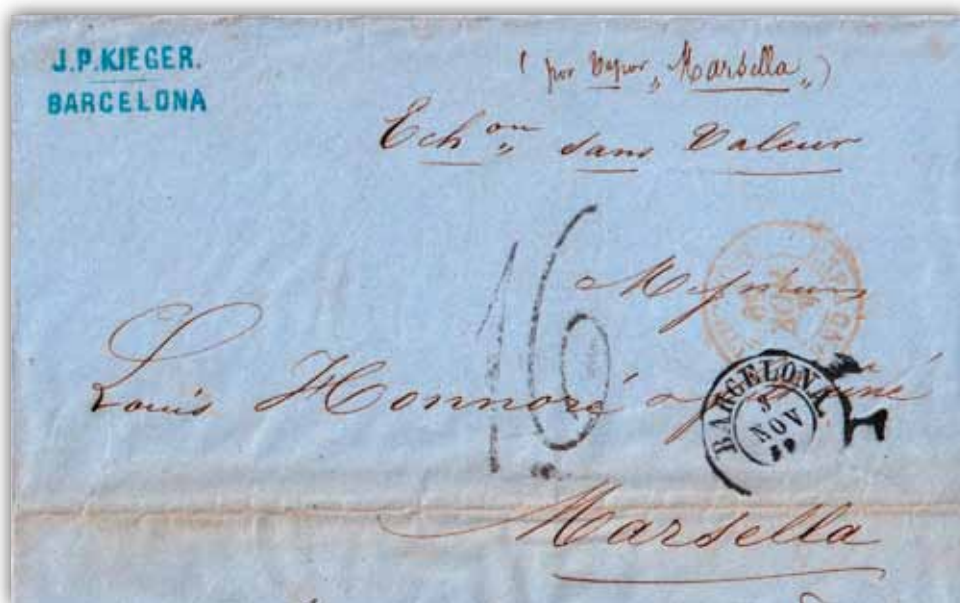 J.P.KIEGER.
BARCELONA
( por Vapor „ Marsella „ )
Echon „ sans Valeur
16
Messieurs
Louis Honnoré
BARCELONA.
3
NOV
59
Marsella